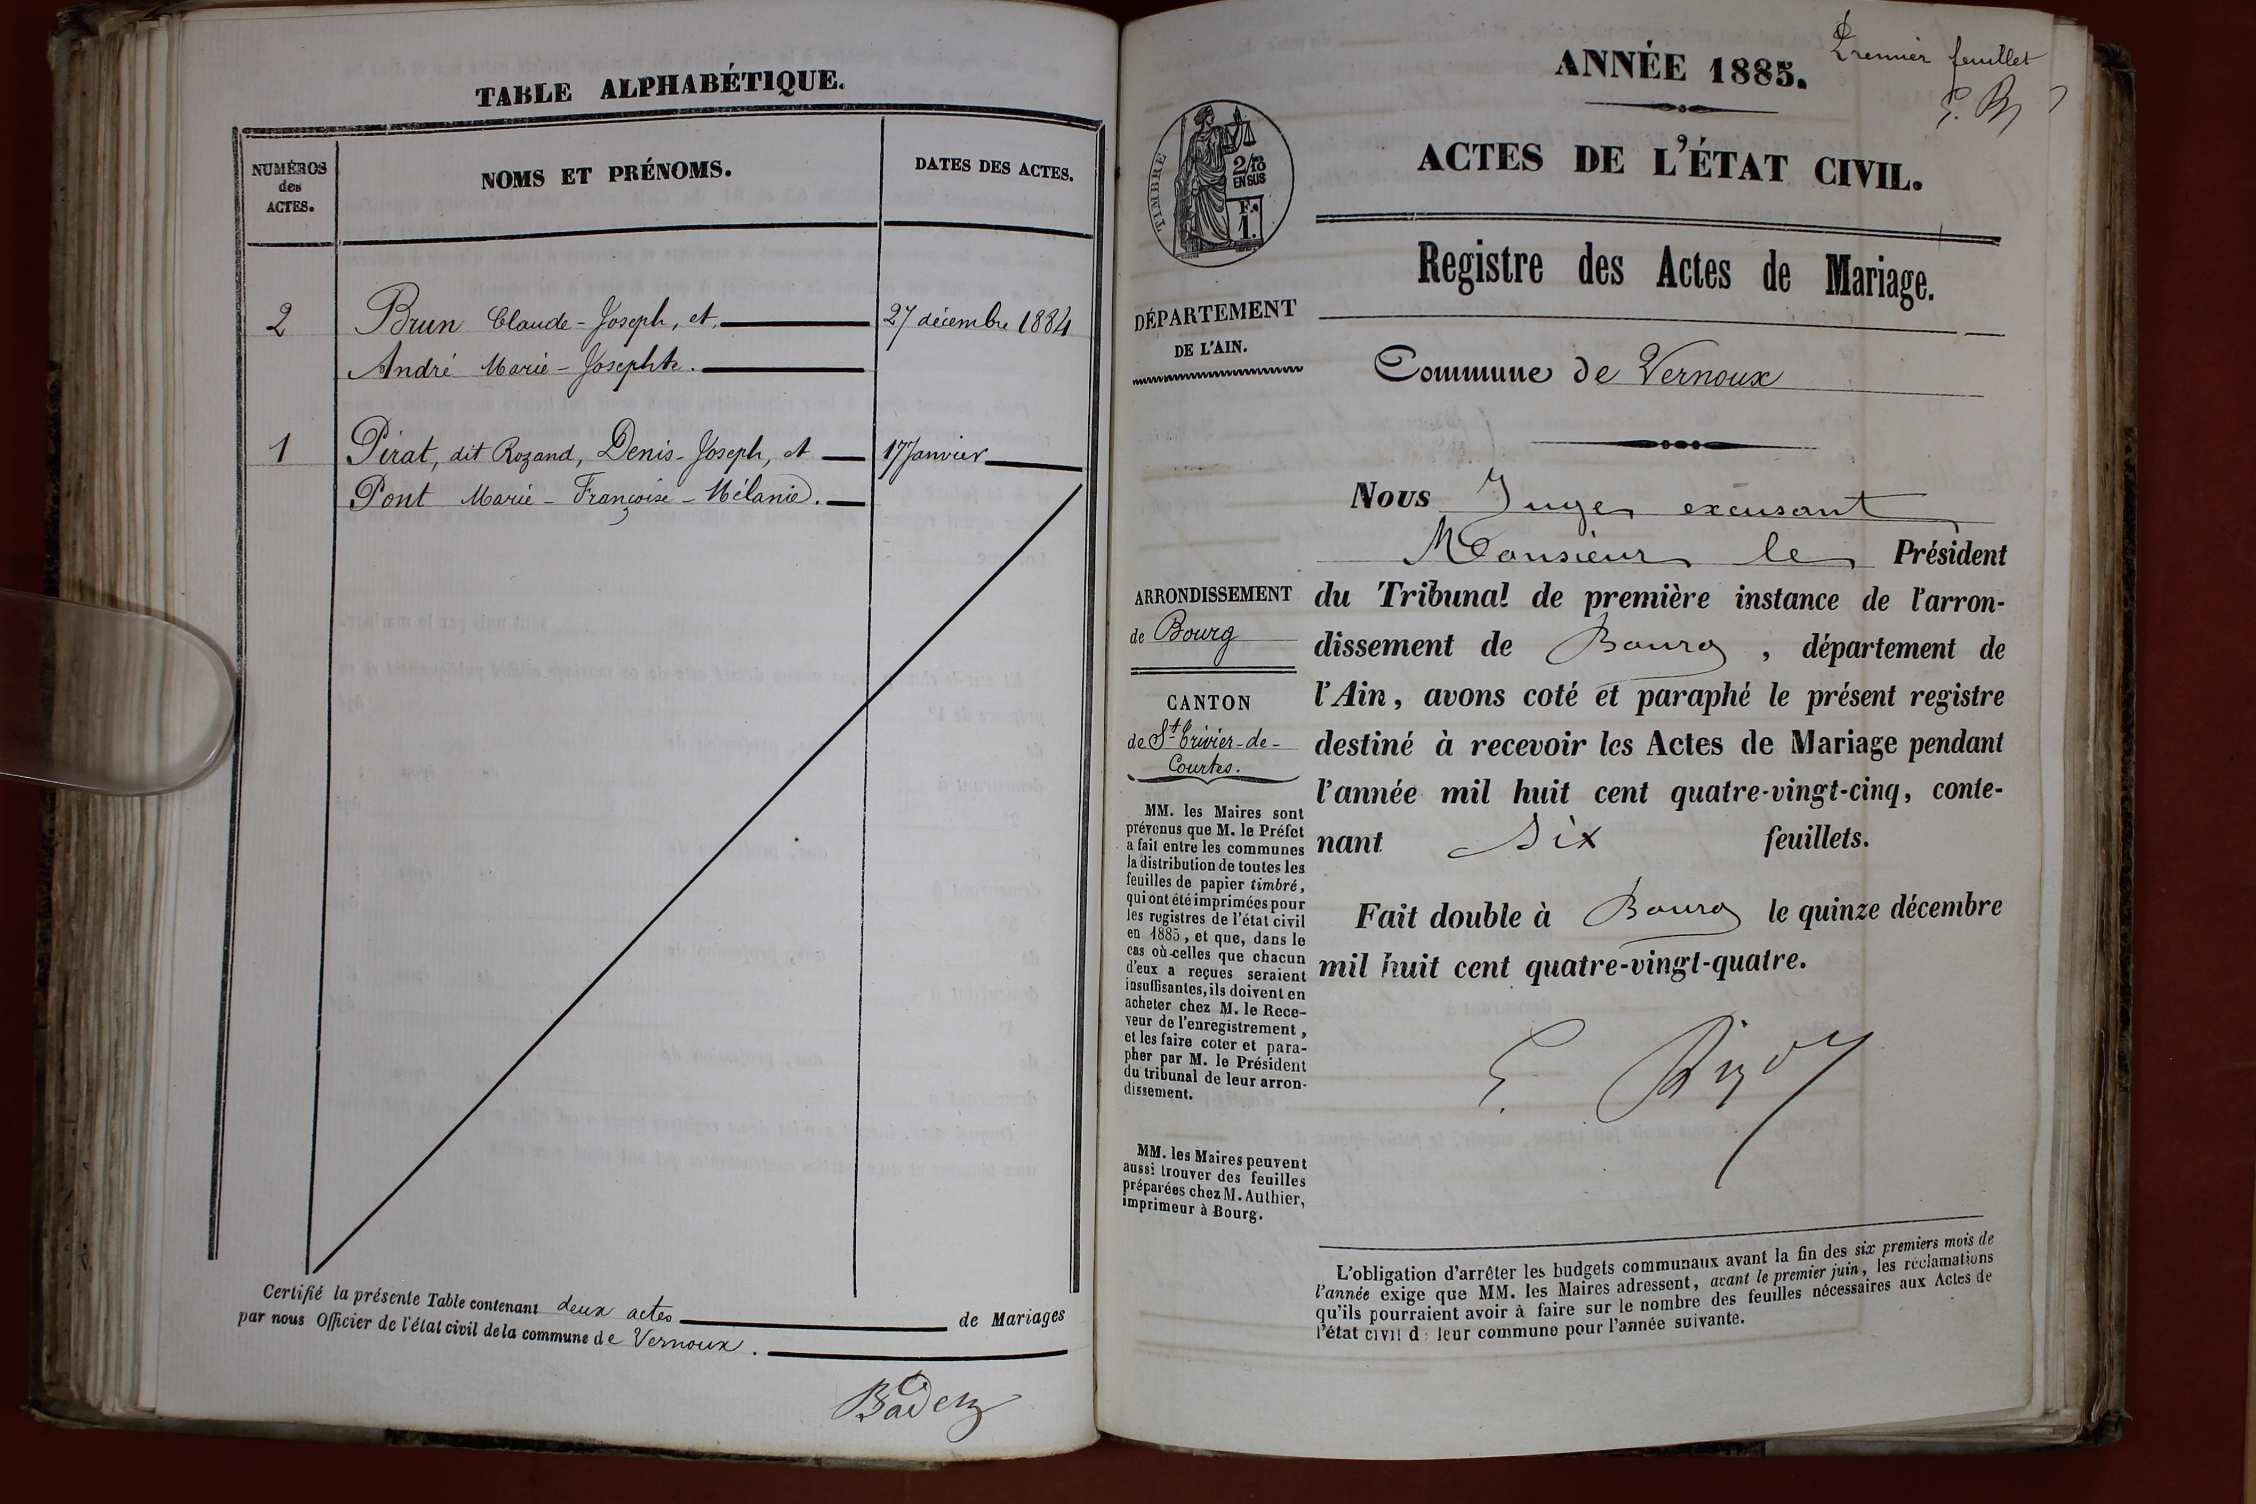 TABLE ALPHABÉTIQUE.
NUMÉROS
des
ACTES.
NOMS ET PRÉNOMS.
DATES DES ACTES.
2 Brun Claude-Joseph, et 27 décembre 1884
André Marie-Josephte.
1 Pirat, dit Rozand, Denis-Joseph, et 17 Janvier
Pont Marie-Françoise-Mélanie.
Certifié la présente Table contenant deux actes de Mariages
par nous Officier de l'état civil de la commune de Vernoux.
Premier feuillet
ANNÉE 1885.
TIMBRE
2/10
EN SUS
F.
1.
ACTES DE L'ÉTAT CIVIL.
Registre des Actes de Mariage.
DÉPARTEMENT
DE L'AIN.
Commune de Vernoux
ARRONDISSEMENT
de Bourg
CANTON
de St Trivier-de-
Courtes.
MM. les Maires sont
prévenus que M. le Préfet
a fait entre les communes
la distribution de toutes les
feuilles de papier timbré,
qui ont été imprimées pour
les registres de l'état civil
en 1885, et que, dans le
cas où celles que chacun
d'eux a reçues seraient
insuffisantes, ils doivent en
acheter chez M. le Rece-
veur de l'enregistrement,
et les faire coter et para-
pher par M. le Président
du tribunal de leur arron-
dissement.
MM. les Maires peuvent
aussi trouver des feuilles
préparées chez M. Authier,
imprimeur à Bourg.
Nous Juge excusant
Monsieur le Président
du Tribunal de première instance de l'arron-
dissement de Bourg, département de
l'Ain, avons coté et paraphé le présent registre
destiné à recevoir les Actes de Mariage pendant
l'année mil huit cent quatre-vingt-cinq, conte-
nant six feuillets.
Fait double à Bourg le quinze décembre
mil huit cent quatre-vingt-quatre.
L'obligation d'arrêter les budgets communaux avant la fin des six premiers mois de
l'année exige que MM. les Maires adressent, avant le premier juin, les réclamations
qu'ils pourraient avoir à faire sur le nombre des feuilles nécessaires aux Actes de
l'état civil d leur commune pour l'année suivante.